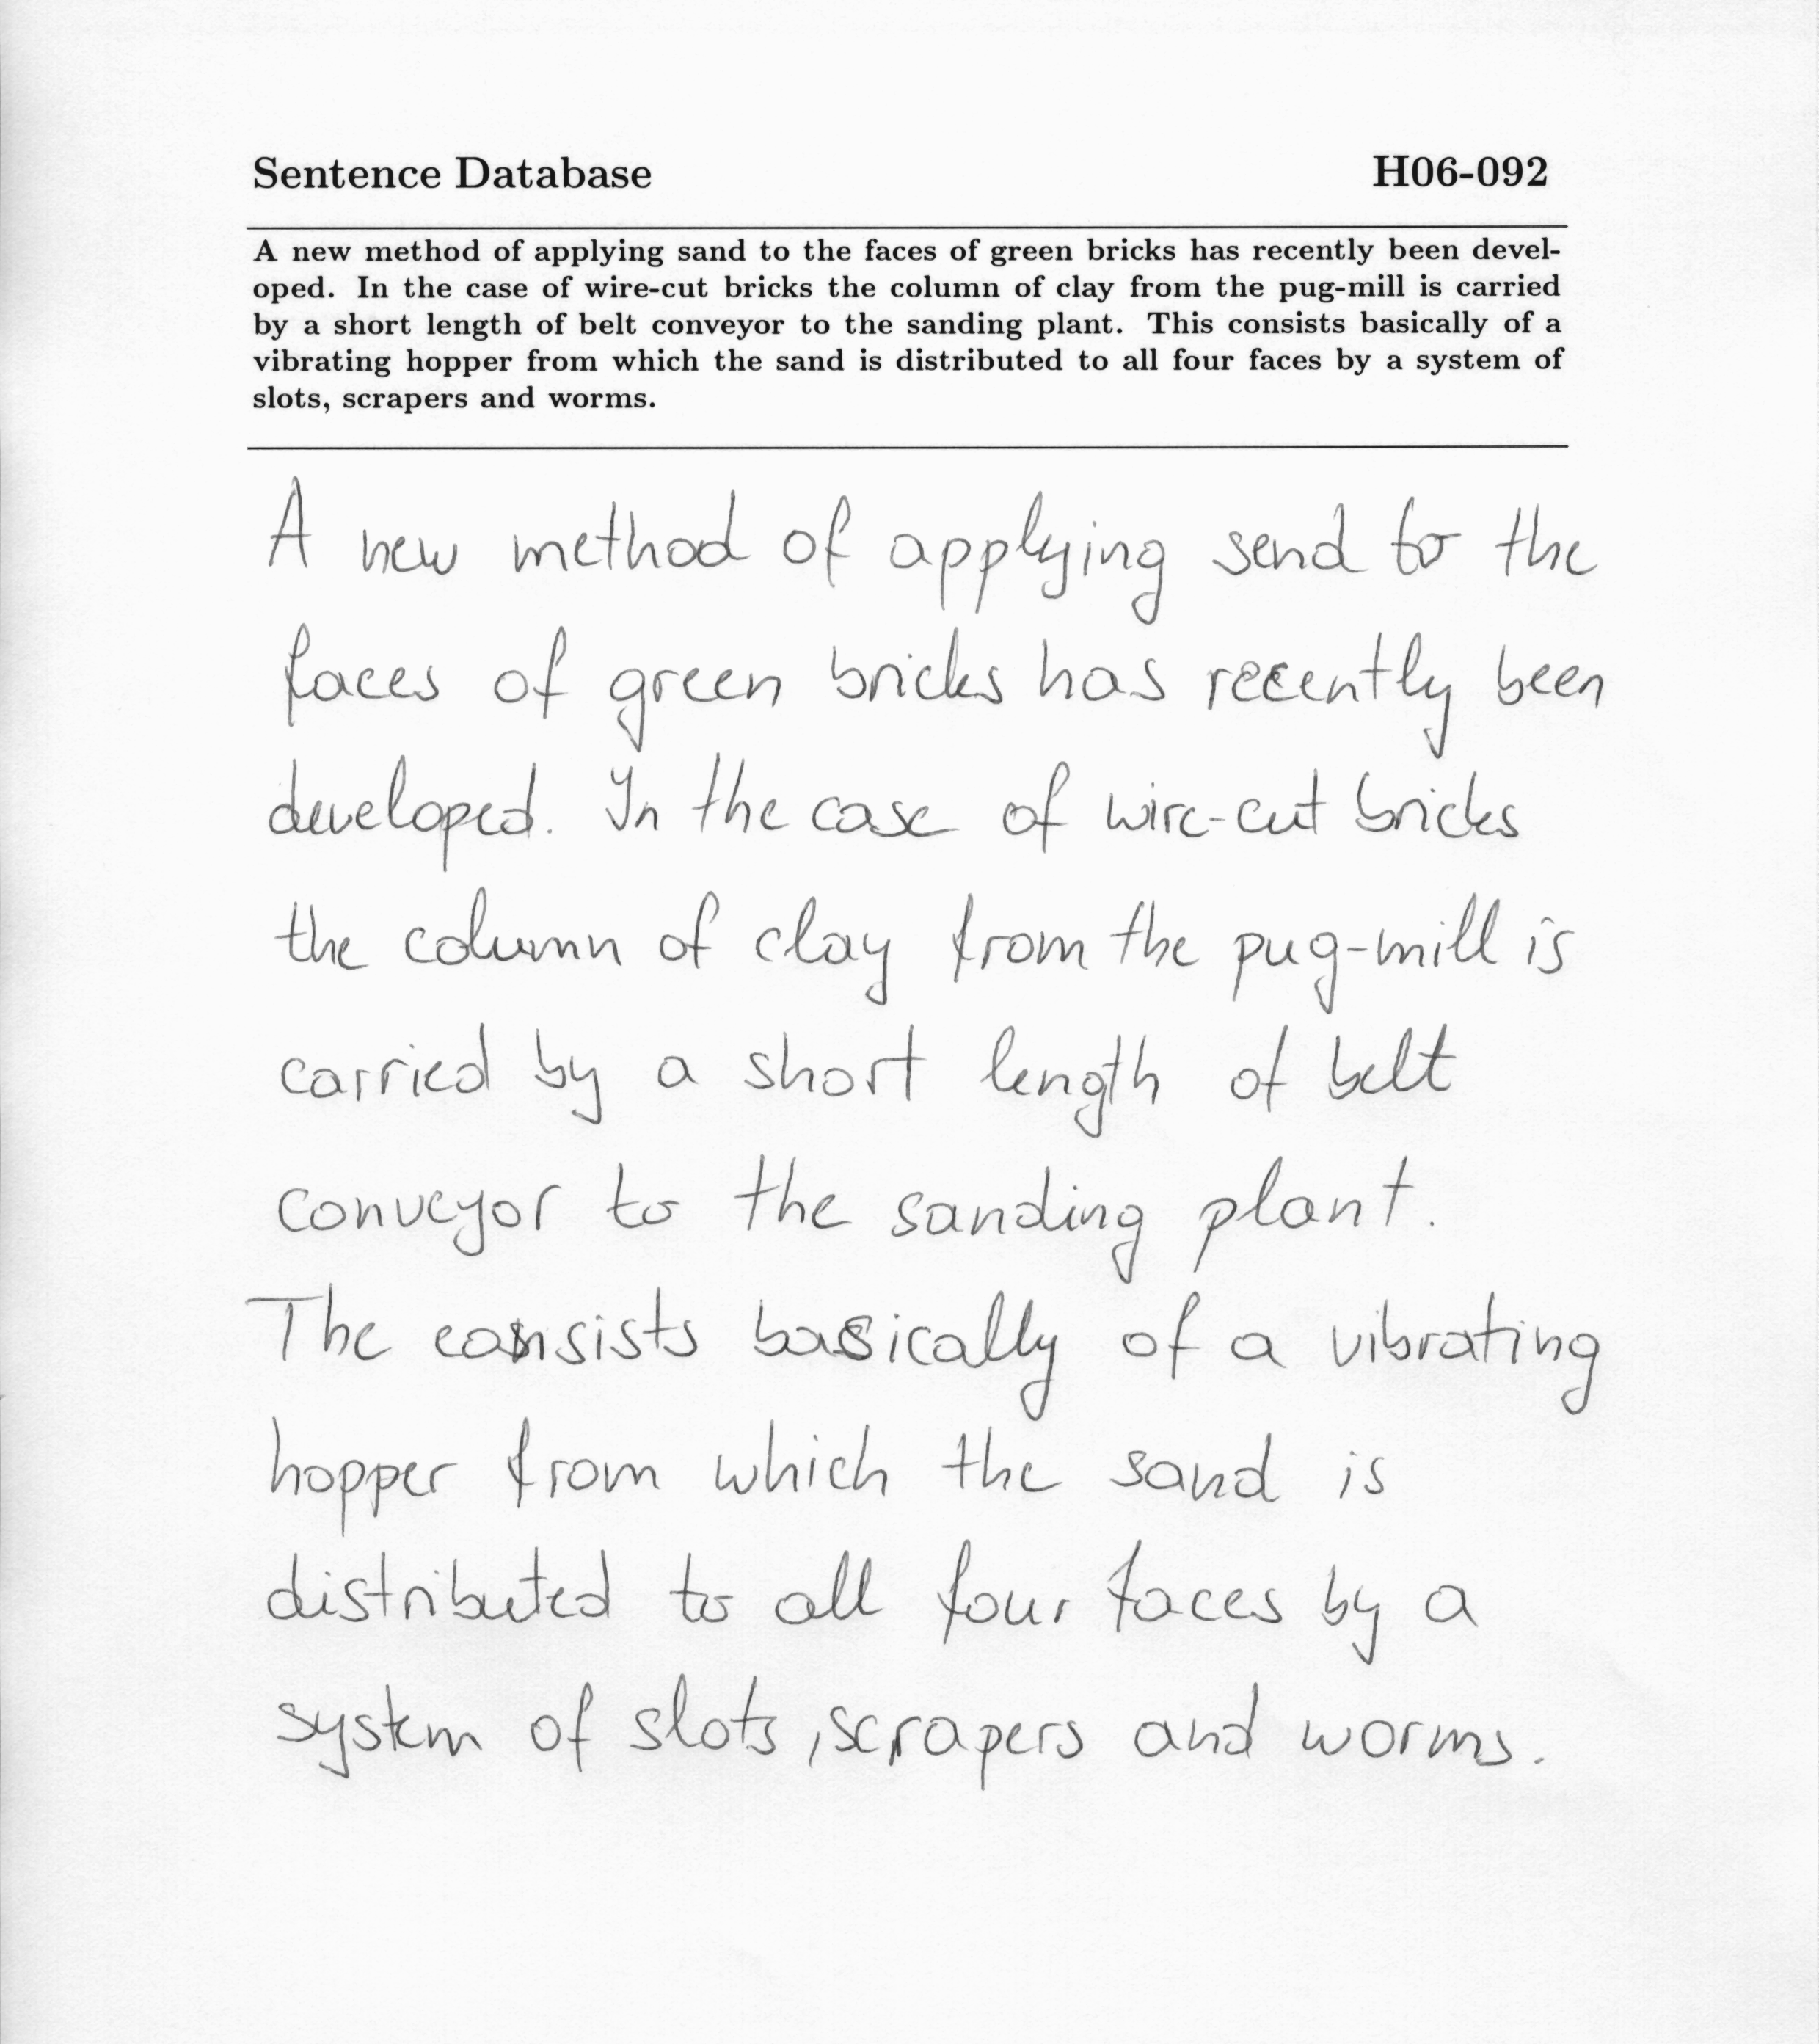 Sentence Database H06-092
A new method of applying sand to the faces of green bricks has recently been devel-
oped. In the case of wire-cut bricks the column of clay from the pug-mill is carried
by a short length of belt conveyor to the sanding plant. This consists basically of a
vibrating hopper from which the sand is distributed to all four faces by a system of
slots, scrapers and worms.
A new method of applying send to the
faces of green bricks has recently been
developed. In the case of wire-cut bricks
the column of clay from the pug-mill is
carried by a short length of belt
conveyor to the sanding plant.
The consists basically of a vibrating
hopper from which the sand is
distributed to all four faces by a
system of slots, scrapers and worms.